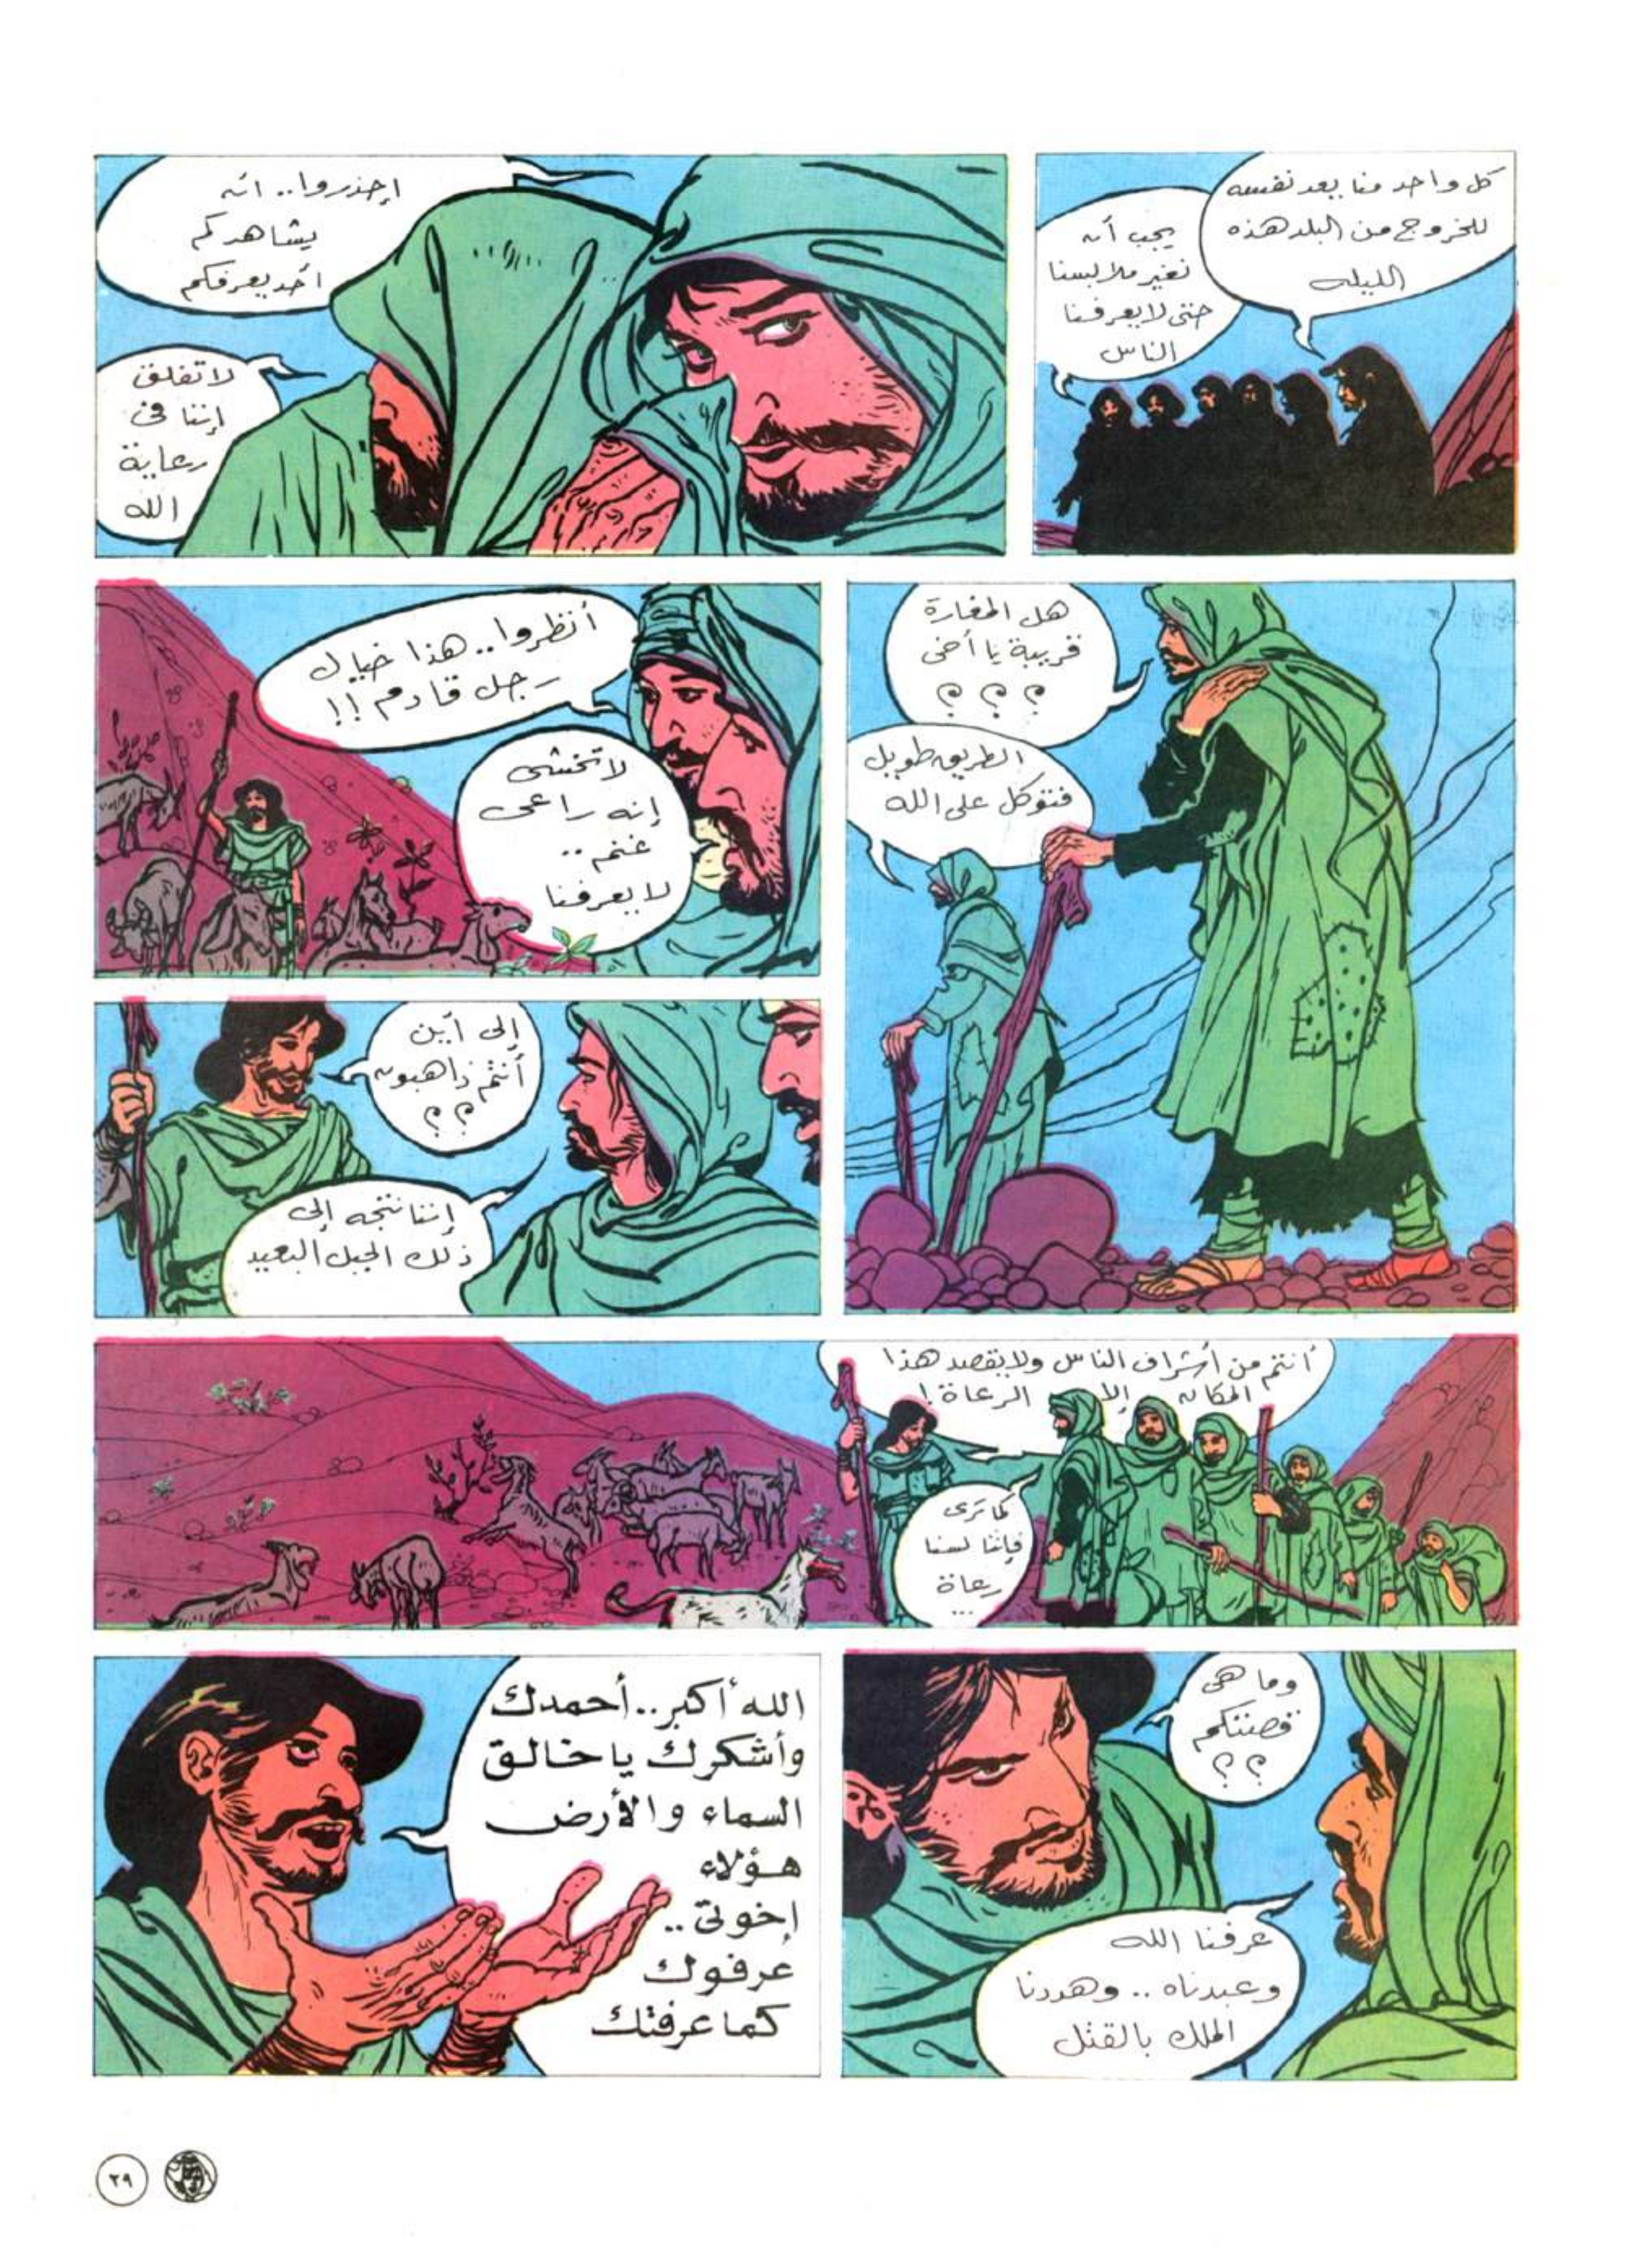 كل واحد منا يعد نفسه
للخروج من البلد هذه
الليله
يجب أن
نغير ملابسنا
حتى لا يعرفنا
الناس
إحذروا.. أن
يشاهدكم
أحد يعرفكم
لا تقلق
إننا فى
رعاية
الله
هل المغارة
قريبة يا أخى
؟ ؟ ؟
الطريق طويل
فتوكل على الله
أنظروا.. هذا خيال
رجل قادم !!
لا تخشى
إنه راعى
غنم ..
لا يعرفنا
إلى أين
أنتم ذاهبون
؟ ؟
إننا نتجه إلى
ذلك الجبل البعيد
أنتم من أشراف الناس ولا يقصد هذا
المكان إلا الرعاة !
كما ترى
فإننا لسنا
رعاة
...
وما هى
قصتكم
؟ ؟
عرفنا الله
وعبدناه .. وهددنا
الملك بالقتل
الله أكبر.. أحمدك
وأشكرك يا خالق
السماء والأرض
هؤلاء
إخوتى ..
عرفوك
كما عرفتك
٢٩